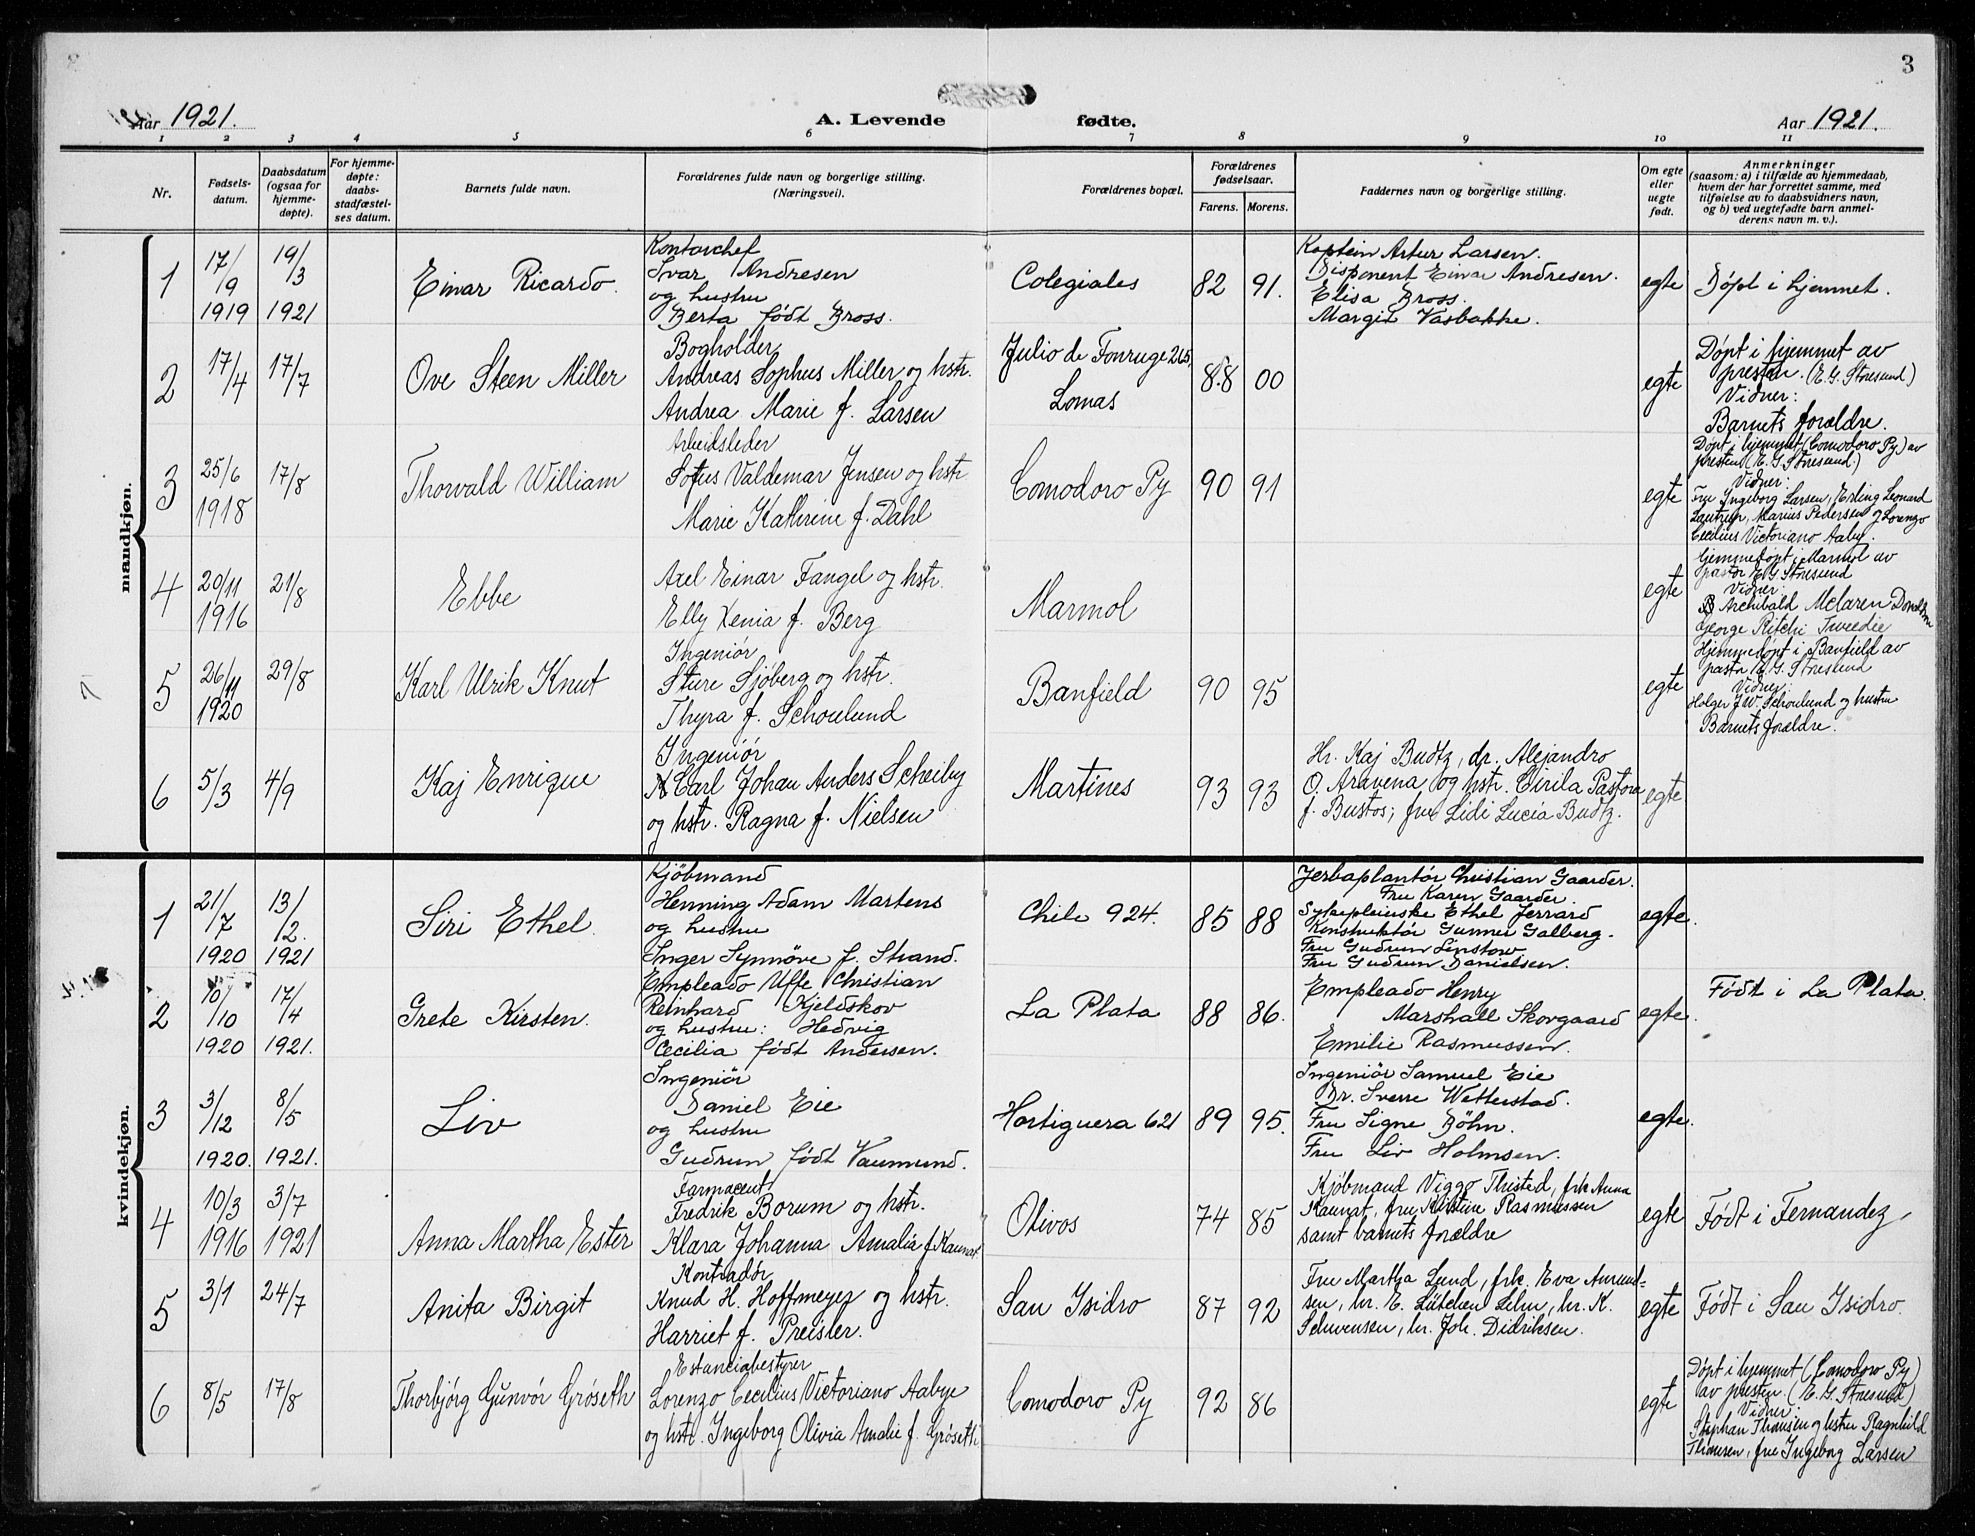 3
Aar 1921.
A. Levende fødte.
Aar 1921.
1 2 3 4 5 6 7 8 9 10 11
Nr.
Fødsels-
datum.
Daabsdatum
(ogsaa for
hjemme-
døpte).
For hjemme-
døpte:
daabs-
stadfæstel-
ses datum.
Barnets fulde navn.
Forældrenes fulde navn og borgerlige stilling.
(Næringsvei).
Forældrenes bopæl.
Forældrenes
fødselsaar.
Farens. Morens.
Faddernes navn og borgerlige stilling.
Om egte
eller
uegte
født.
Anmerkninger
(saasom: a) i tilfælde av hjemmedaab,
hvem der har forrettet samme, med
tilføielse av to daabsvidners navn,
og b) ved uegtefødte barn anmel-
derens navn m. v.).
mandkjøn.
1
17/9
1919
19/3
1921
Einar Ricardo.
Kontorchef
Ivar Andresen
og hustru
Berta født Bross.
Colegiales
82 91.
Kaptein Artur Larsen.
Disponent Einar Andresen.
Elisa Bross.
Margit Vasbakke.
egte
Døpt i hjemmet.
2
17/4
17/7
Ove Steen Miller
Bogholder
Andreas Sophus Miller og hstr.
Andrea Marie f. Larsen
Julio de Fonruge 265,
Lomas
88 00
egte
Døpt i hjemmet av
presten. (E. G. Storesund)
Vidner:
Barnets forældre.
3
25/6
1918
17/8
Thorvald William
Arbeidsleder
Sofus Valdemar Jensen og hstr
Marie Kathrine f. Dahl
Comodoro Py
90 91
egte
Døpt i hjemmet (Comodoro Py) av
presten (E. G. Storesund)
Vidner:
Fru Ingeborg Larsen, Erling Leonard
Lautrup, Marius Pedersen og Lorenzo
Cecilius Victoriano Aabye.
4
20/11
1916
21/8
Ebbe
Axel Einar Fangel og hstr.
Elly Xenia f. Berg
Marmol
egte
Hjemmedøpt i Marmol av
pastor E. G. Storesund
Vidner:
Archibald McLaren Donaldson
George Ritchi Tweedie
5
26/11
1920
29/8
Karl Ulrik Knut
Ingeniør
Sture Sjöberg og hstr.
Thyra f. Schoulund
Banfield
90 95
egte
Hjemmedøpt i Banfield av
pastor E. G. Storesund
Vidner:
Holger J. W. Schoulund og hustru
Barnets forældre.
6
5/3
4/9
Kaj Enrique
Ingeniør
Carl Johan Anders Scheiby
og hstr. Ragna f. Nielsen
Martines
93 93
Hr. Kaj Budtz, dr. Alejandro
O. Aravena og hstr. Cirila Pastora
f. Bustos; frk Lidi Lucia Budtz.
egte
kvindekjøn.
1
21/7
1920
13/2.
1921
Siri Ethel.
Kjøbmand
Henning Adam Martens
og hustru
Inger Synnøve f. Strand.
Chile 924.
85 88
Jerbaplantør Christian Gaarder.
Fru Karen Gaarder.
Sykepleierske Ethel Jerrard
Konstruktør Gunner Galberg.
Fru Gudrun Linstow
Fru Gudrun Danielsen.
egte.
2
10/10
1920
17/4
1921.
Grete Kirsten.
Empleado Uffe Christian
Reinhard Kjeldskov
og hustru: Hedvig
Cecilia født Andersen.
La Plata
88 86.
Empleado Henry
Marshall Skovgaard
Emilie Rasmussen.
egte.
Født i La Plata.
3
3/12
1920.
8/5
1921.
Liv
Ingeniør
Daniel Eie
og hustru
Gudrun født Vaumund.
Hortiguera 621
89 95.
Ingeniør Samuel Eie
Dr. Sverre Wetterstad.
Fru Signe Böhn.
Fru Liv Holmsen.
egte.
4
10/3
1916
3/7
1921
Anna Martha Ester
Farmaceut
Fredrik Borum og hstr.
Klara Johanna Amalia f. Kaunat
Olivos
74 85
Kjøbmand Viggo Thisted, frk Anna
Kaunat, fru Kirstine Rasmussen
samt barnets forældre
egte
Født i Fernandez
5
3/1
24/7
Anita Birgit
Kontradør
Knud H. Hoffmeyer og hstr.
Harriet f. Preisler.
San Isidro
87 92
Fru Martha Lund, frk. Eva Amund-
sen, hr. E. Lütchen Lehn, hr. K.
Schwensen, hr. Joh. Didriksen.
egte
Født i San Isidro.
6
8/5
17/8
Thorbjörg Gunvör Gröseth
Estanciabestyrer
Lorenzo Cecilius Victoriano Aabye
og hstr. Ingeborg Olivia Amalie f. Gröseth
Comodoro Py
92 86
egte
Døpt i hjemmet (Comodoro Py)
av presten (E. G. Storesund)
Vidner:
Stephan Thomsen og hstru Ragnhild
Thomsen, fru Ingeborg Larsen